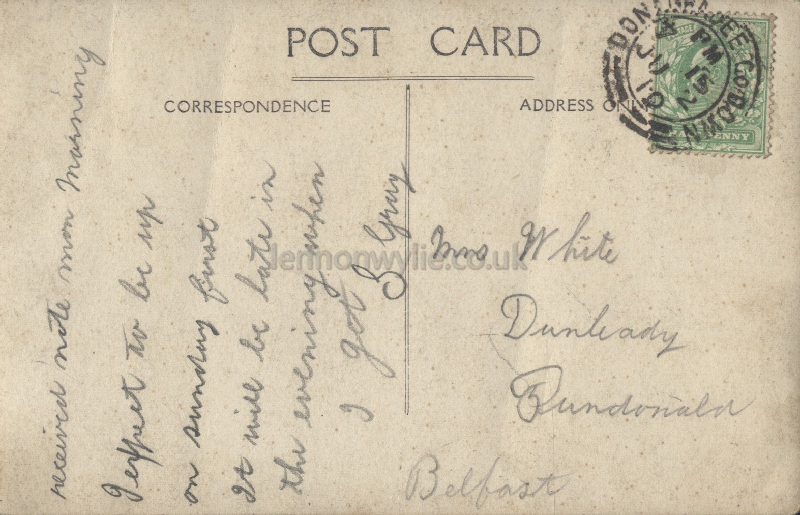 POST CARD
CORRESPONDENCE
ADDRESS ONLY
received note mon morning
I expect to be up
on sunday first
It will be late in
the evening when
I got
S Gray
Mrs White
Dunleady
Dundonald
Belfast
DONAGHADEE CO DOWN
PM
JU
10
PENNY
lennonwylie.co.uk